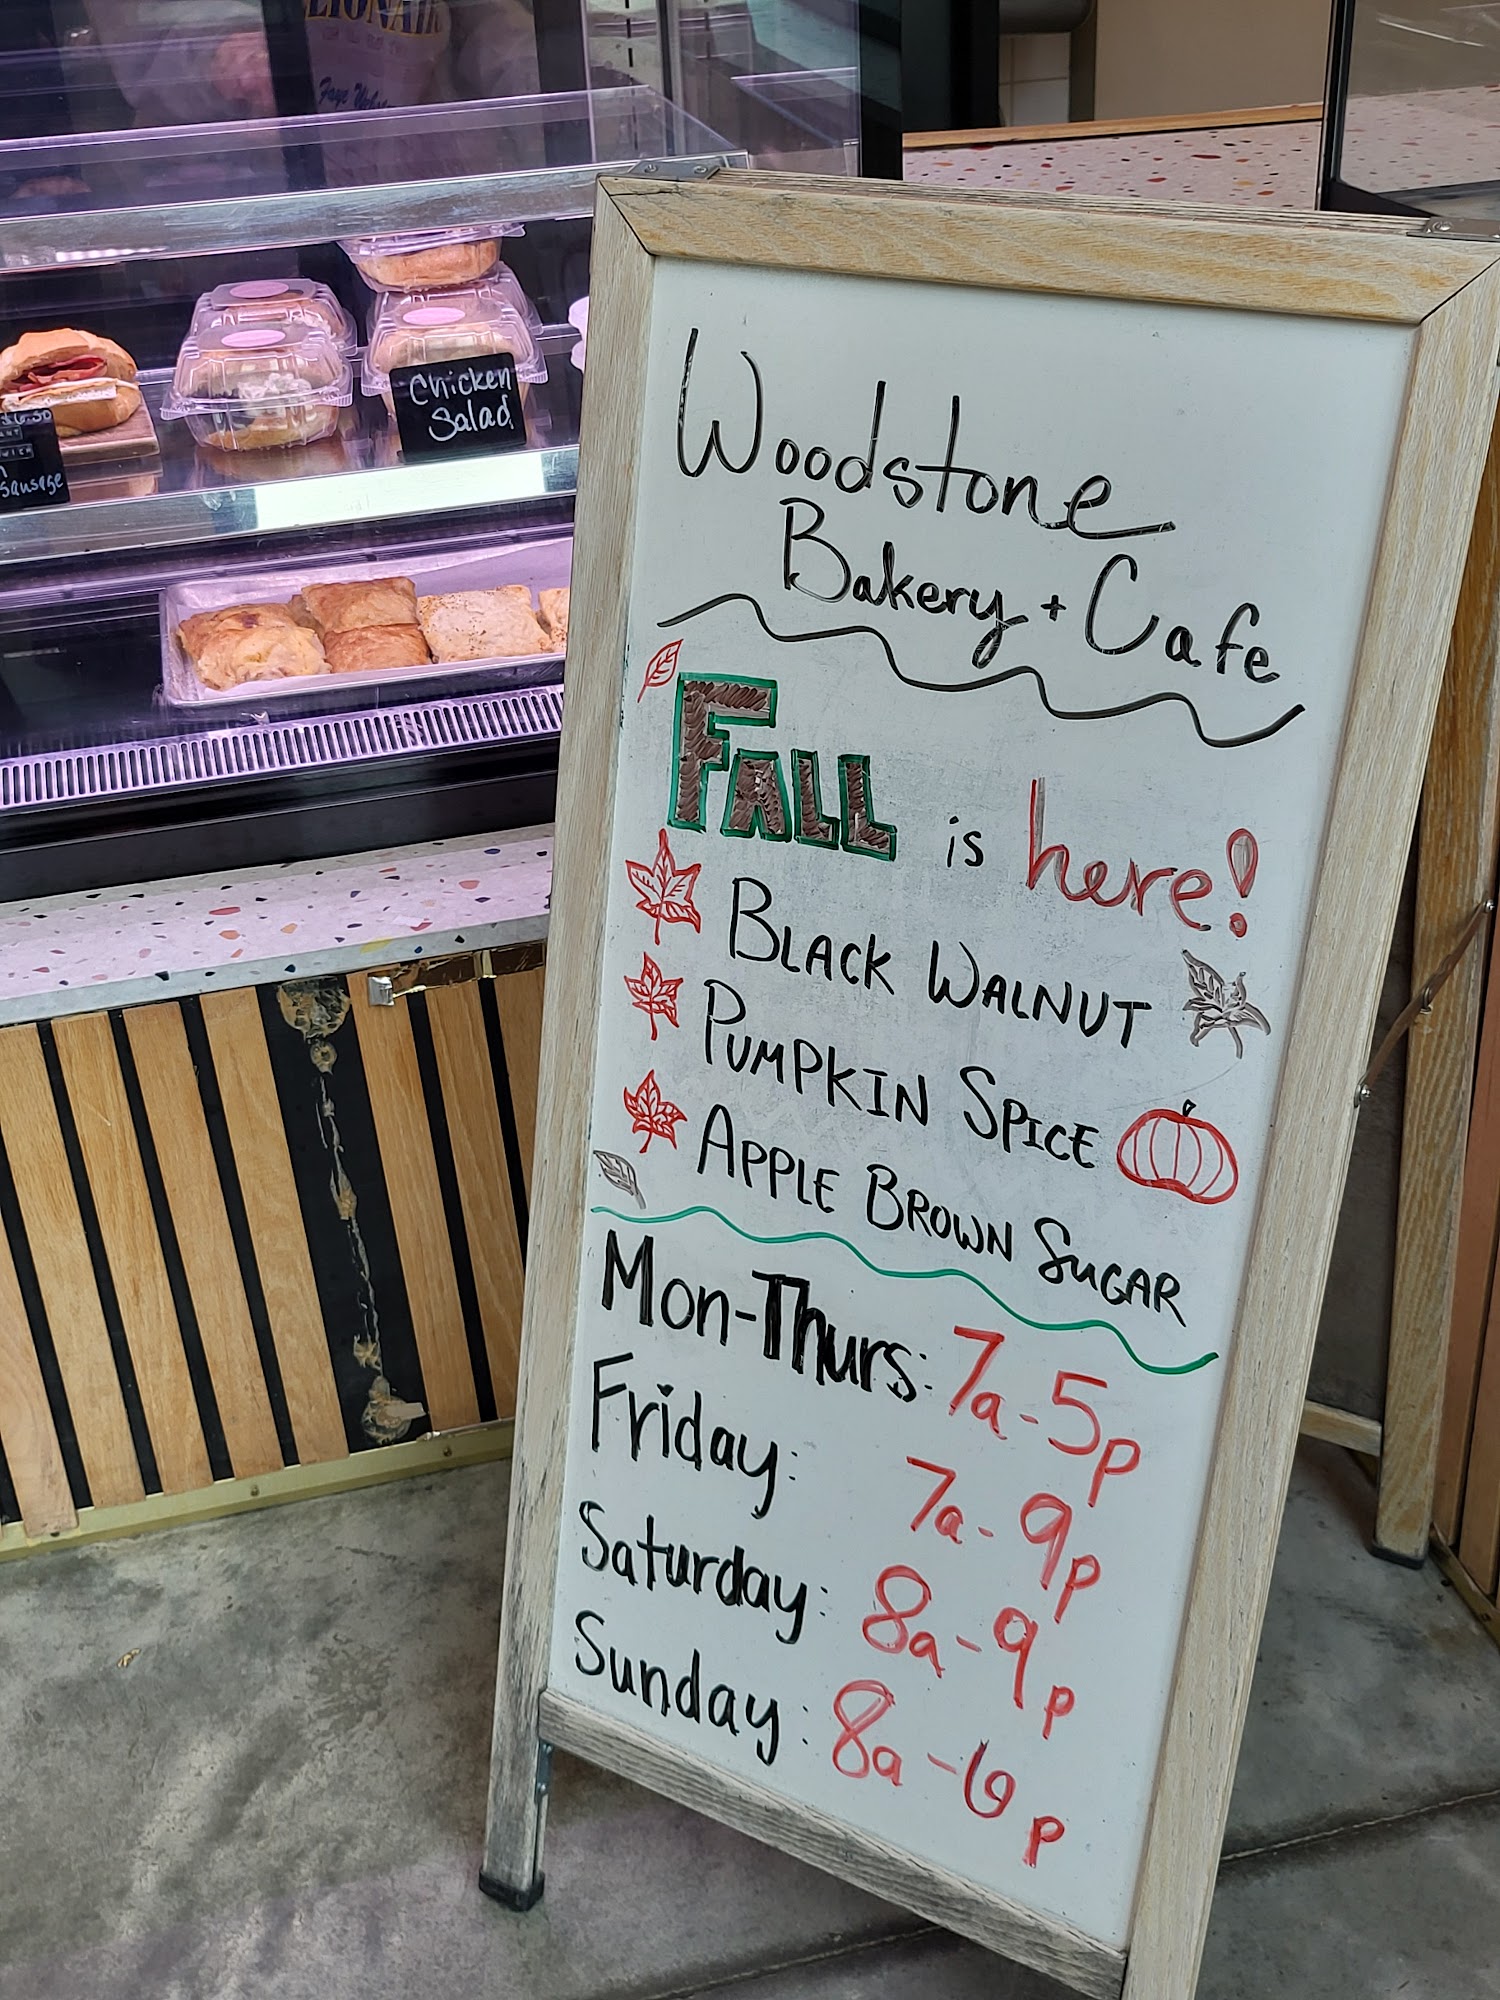 Faye
Chicken
Salad
$6.50
sausage
Woodstone
Bakery + Cafe
FALL is here!
BLACK WALNUT
PUMPKIN SPICE
APPLE BROWN SUGAR
Mon-Thurs: 7a-5p
Friday: 7a-9p
Saturday: 8a-9p
Sunday: 8a-6p